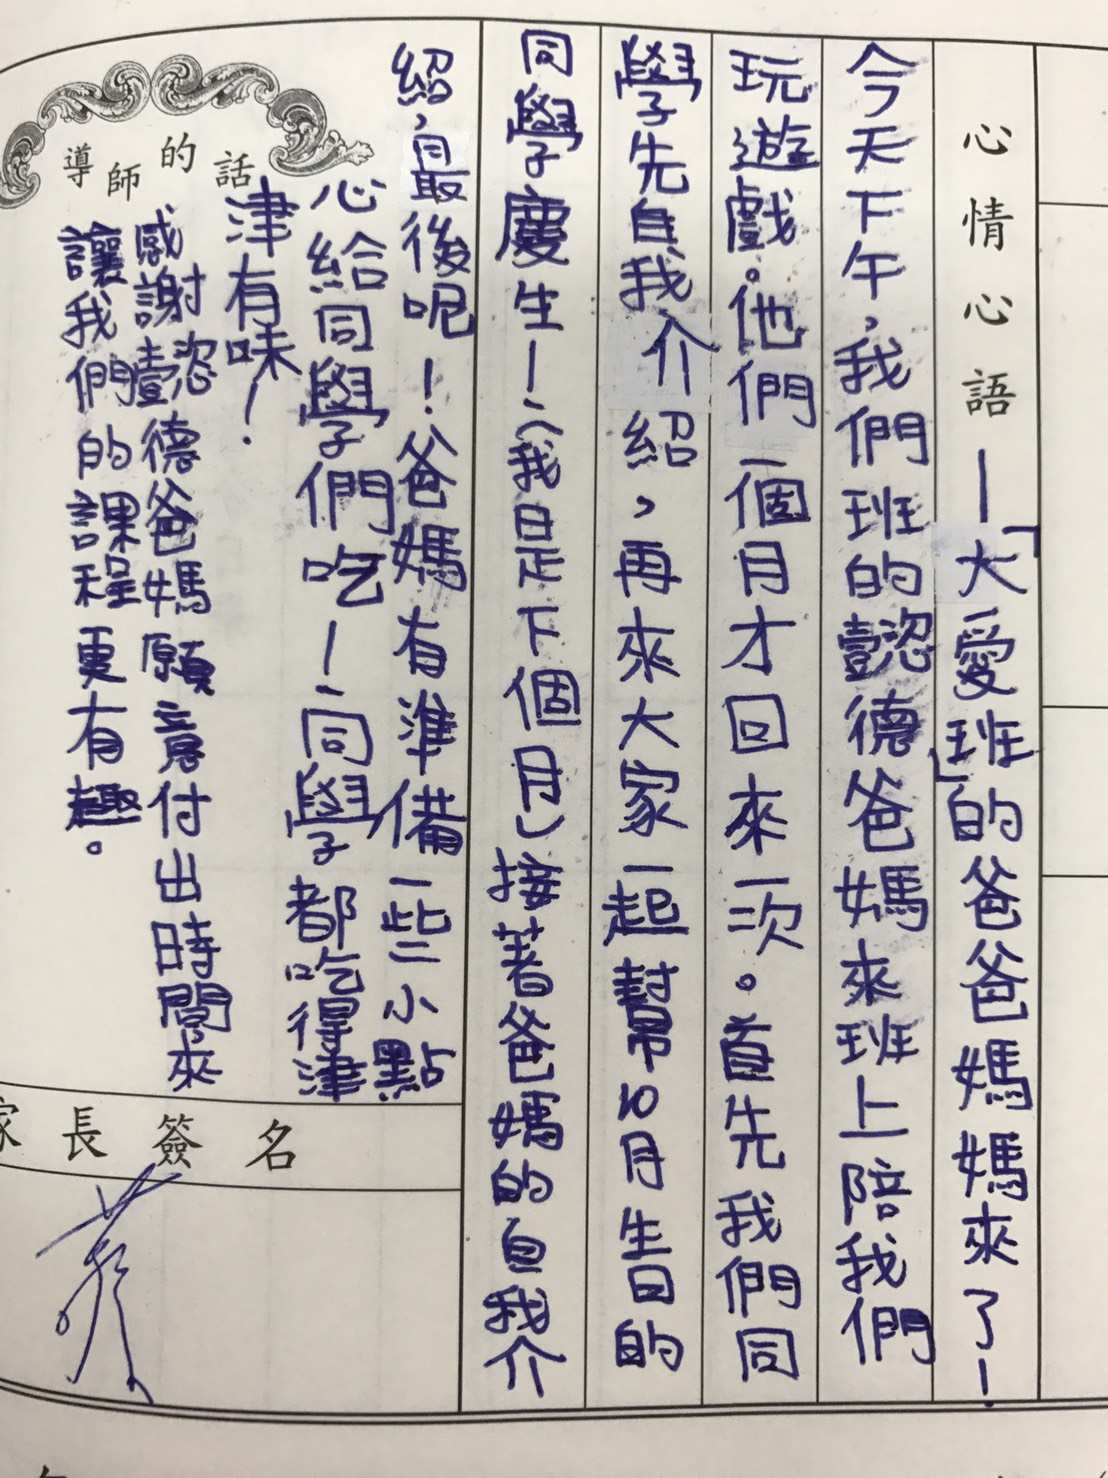 心情心語—「大愛班」的爸爸媽媽來了！
今天下午，我們班的懿德爸媽來班上陪我們
玩遊戲。他們一個月才回來一次。首先我們同
學先自我介紹，再來大家一起幫10月生日的
同學慶生！（我是下個月）接著爸媽的自我介
紹，最後呢！爸媽有準備一些小點
心給同學們吃！同學都吃得津
津有味！
導師的話
感謝懿德爸媽願意付出時間來
讓我們的課程更有趣。
家長簽名